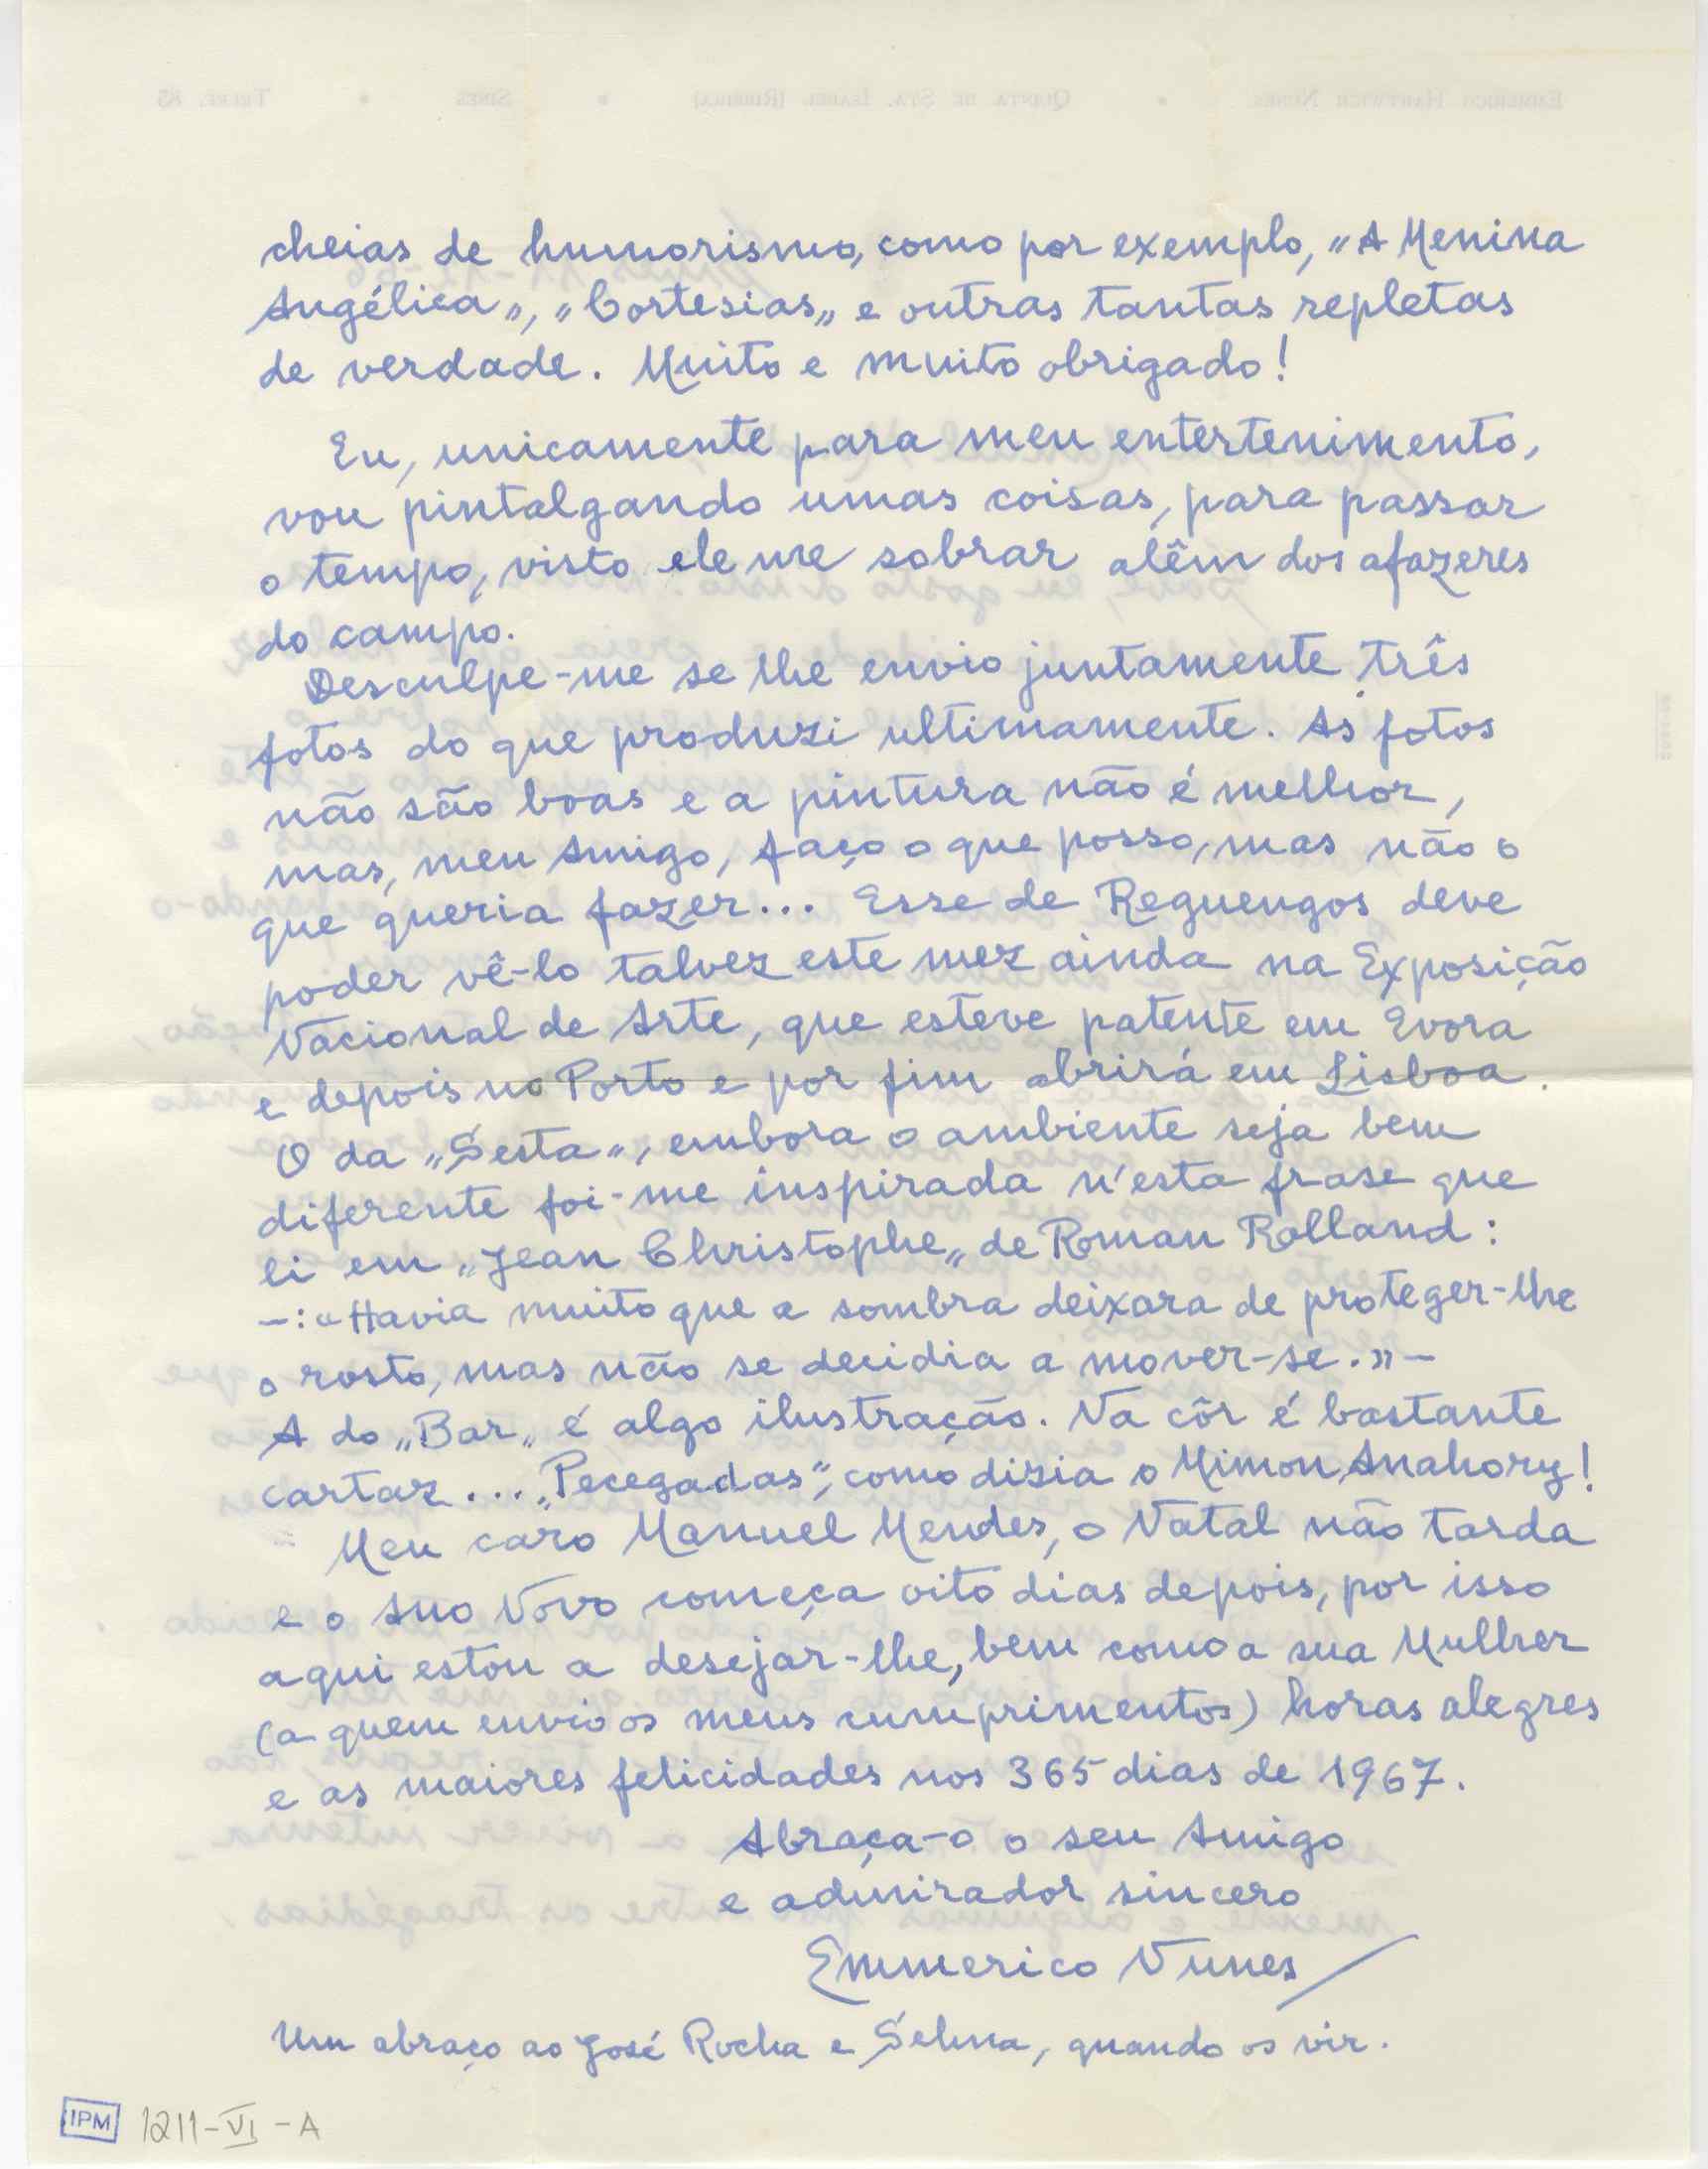 cheias de humorismo, como por exemplo, "A Menina
Angélica", "Cortesias" e outras tantas repletas
de verdade. Muito e muito obrigado!
Eu, unicamente para meu entertenimento,
vou pintalgando umas coisas, para passar
o tempo, visto ele me sobrar alêm dos afazeres
do campo.
Desculpe-me se lhe envio juntamente três
fotos do que produzi ultimamente. As fotos
não são boas e a pintura não é melhor,
mas, meu Amigo, faço o que posso, mas não o
que queria fazer... Esse de Reguengos deve
poder vê-lo talvez este mez ainda na Exposição
Nacional de Arte, que esteve patente em Evora
e depois no Porto e por fim abrirá em Lisboa.
O da "Sesta", embora o ambiente seja bem
diferente foi-me inspirada n'esta frase que
li em "Jean Christophe" de Roman Rolland:
—: «Havia muito que a sombra deixara de proteger-lhe
o rosto, mas não se decidia a mover-se.» —
A do "Bar" é algo ilustração. Na côr é bastante
cartaz.... "Pecegadas", como dizia o Mimon Anahory!
Meu caro Manuel Mendes, o Natal não tarda
e o Ano Novo começa oito dias depois, por isso
aqui estou a desejar-lhe, bem como a sua Mulher
(a quem envio os meus cumprimentos) horas alegres
e as maiores felicidades nos 365 dias de 1967.
Abraça-o o seu Amigo
e admirador sincero
Emmerico Nunes
Um abraço ao José Rocha e Selma, quando os vir.
IPM 1211-VI-A